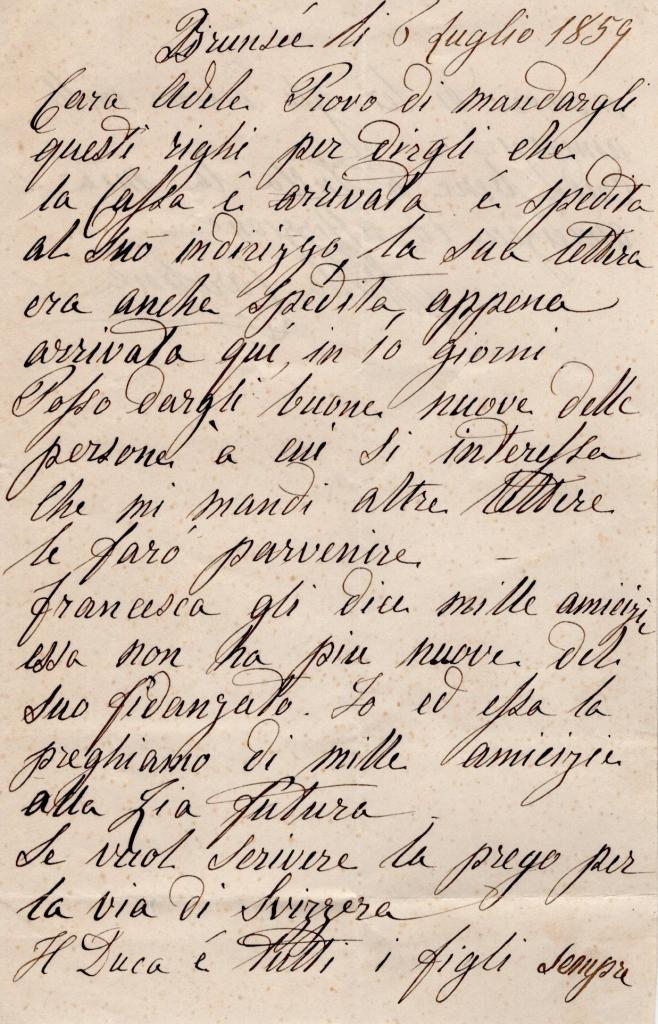 Brunsée li 6 Luglio 1859
Cara Adele Provo di mandargli
questi righi per dirgli che
la Cassa è arrivata é spedita
al suo indirizzo, la sua lettera
era anche spedita, appena
arrivata quí, in 10 giorni
Posso dargli buone nuove delle
persone à cui si interessa
Che mi mandi altre lettere
le faró parvenire. —
Francesca gli dice mille amicizie
essa non ha piu nuove del
suo fidanzato. Io ed essa la
preghiamo di mille amicizie
alla Zia futura
Se vuol scrivere la prego per
la via di Svizzera
Il Duca é tutti i figli sempre